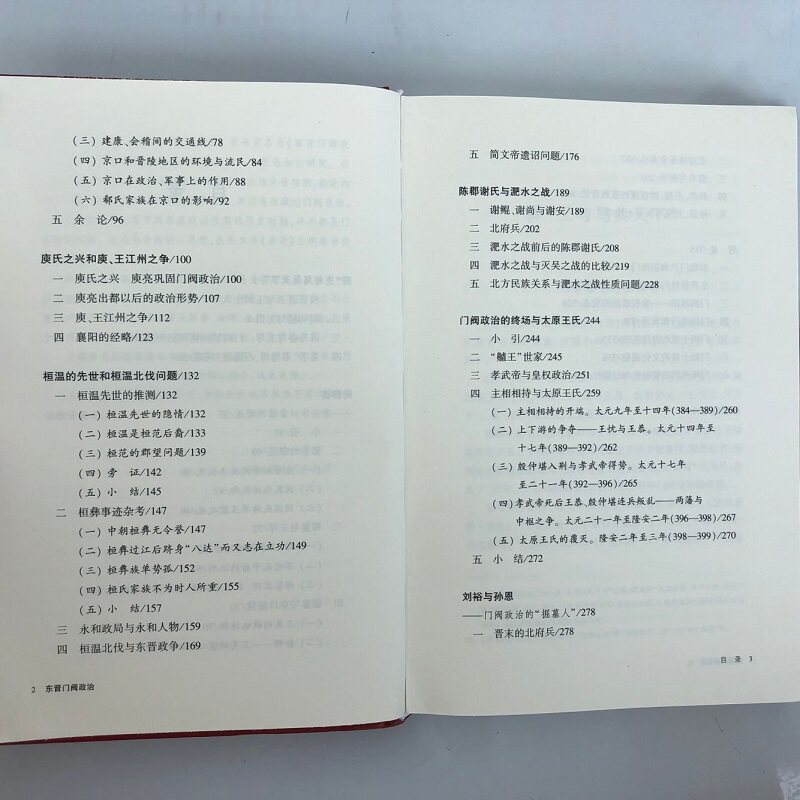 （三）建康、会稽间的交通线/78
（四）京口和晋陵地区的环境与流民/84
（五）京口在政治、军事上的作用/88
（六）郗氏家族在京口的影响/92
五 余 论/96
庾氏之兴和庾、王江州之争/100
一 庾氏之兴 庾亮巩固门阀政治/100
二 庾亮出都以后的政治形势/107
三 庾、王江州之争/112
四 襄阳的经略/123
桓温的先世和桓温北伐问题/132
一 桓温先世的推测/132
（一）桓温先世的隐情/132
（二）桓温是桓范后裔/133
（三）桓范的郡望问题/139
（四）旁 证/142
（五）小 结/145
二 桓彝事迹杂考/147
（一）中朝桓彝无令誉/147
（二）桓彝过江后跻身“八达”而又志在立功/149
（三）桓彝族单势孤/152
（四）桓氏家族不为时人所重/155
（五）小 结/157
三 永和政局与永和人物/159
四 桓温北伐与东晋政争/169
2 东晋门阀政治
五 简文帝遗诏问题/176
陈郡谢氏与淝水之战/189
一 谢鲲、谢尚与谢安/189
二 北府兵/202
三 淝水之战前后的陈郡谢氏/208
四 淝水之战与灭吴之战的比较/219
五 北方民族关系与淝水之战性质问题/228
门阀政治的终场与太原王氏/244
一 小 引/244
二 “𪖌王”世家/245
三 孝武帝与皇权政治/251
四 主相相持与太原王氏/259
（一）主相相持的开端。太元九年至十四年(384—389)/260
（二）上下游的争夺——王忱与王恭。太元十四年至
十七年(389—392)/262
（三）殷仲堪入荆与孝武帝得势。太元十七年
至二十一年(392—396)/265
（四）孝武帝死后王恭、殷仲堪连兵叛乱——两藩与
中枢之争。太元二十一年至隆安二年(396—398)/267
（五）太原王氏的覆灭。隆安二年至三年(398—399)/270
五 小 结/272
刘裕与孙恩
——门阀政治的“掘墓人”/278
一 晋末的北府兵/278
目 录 3